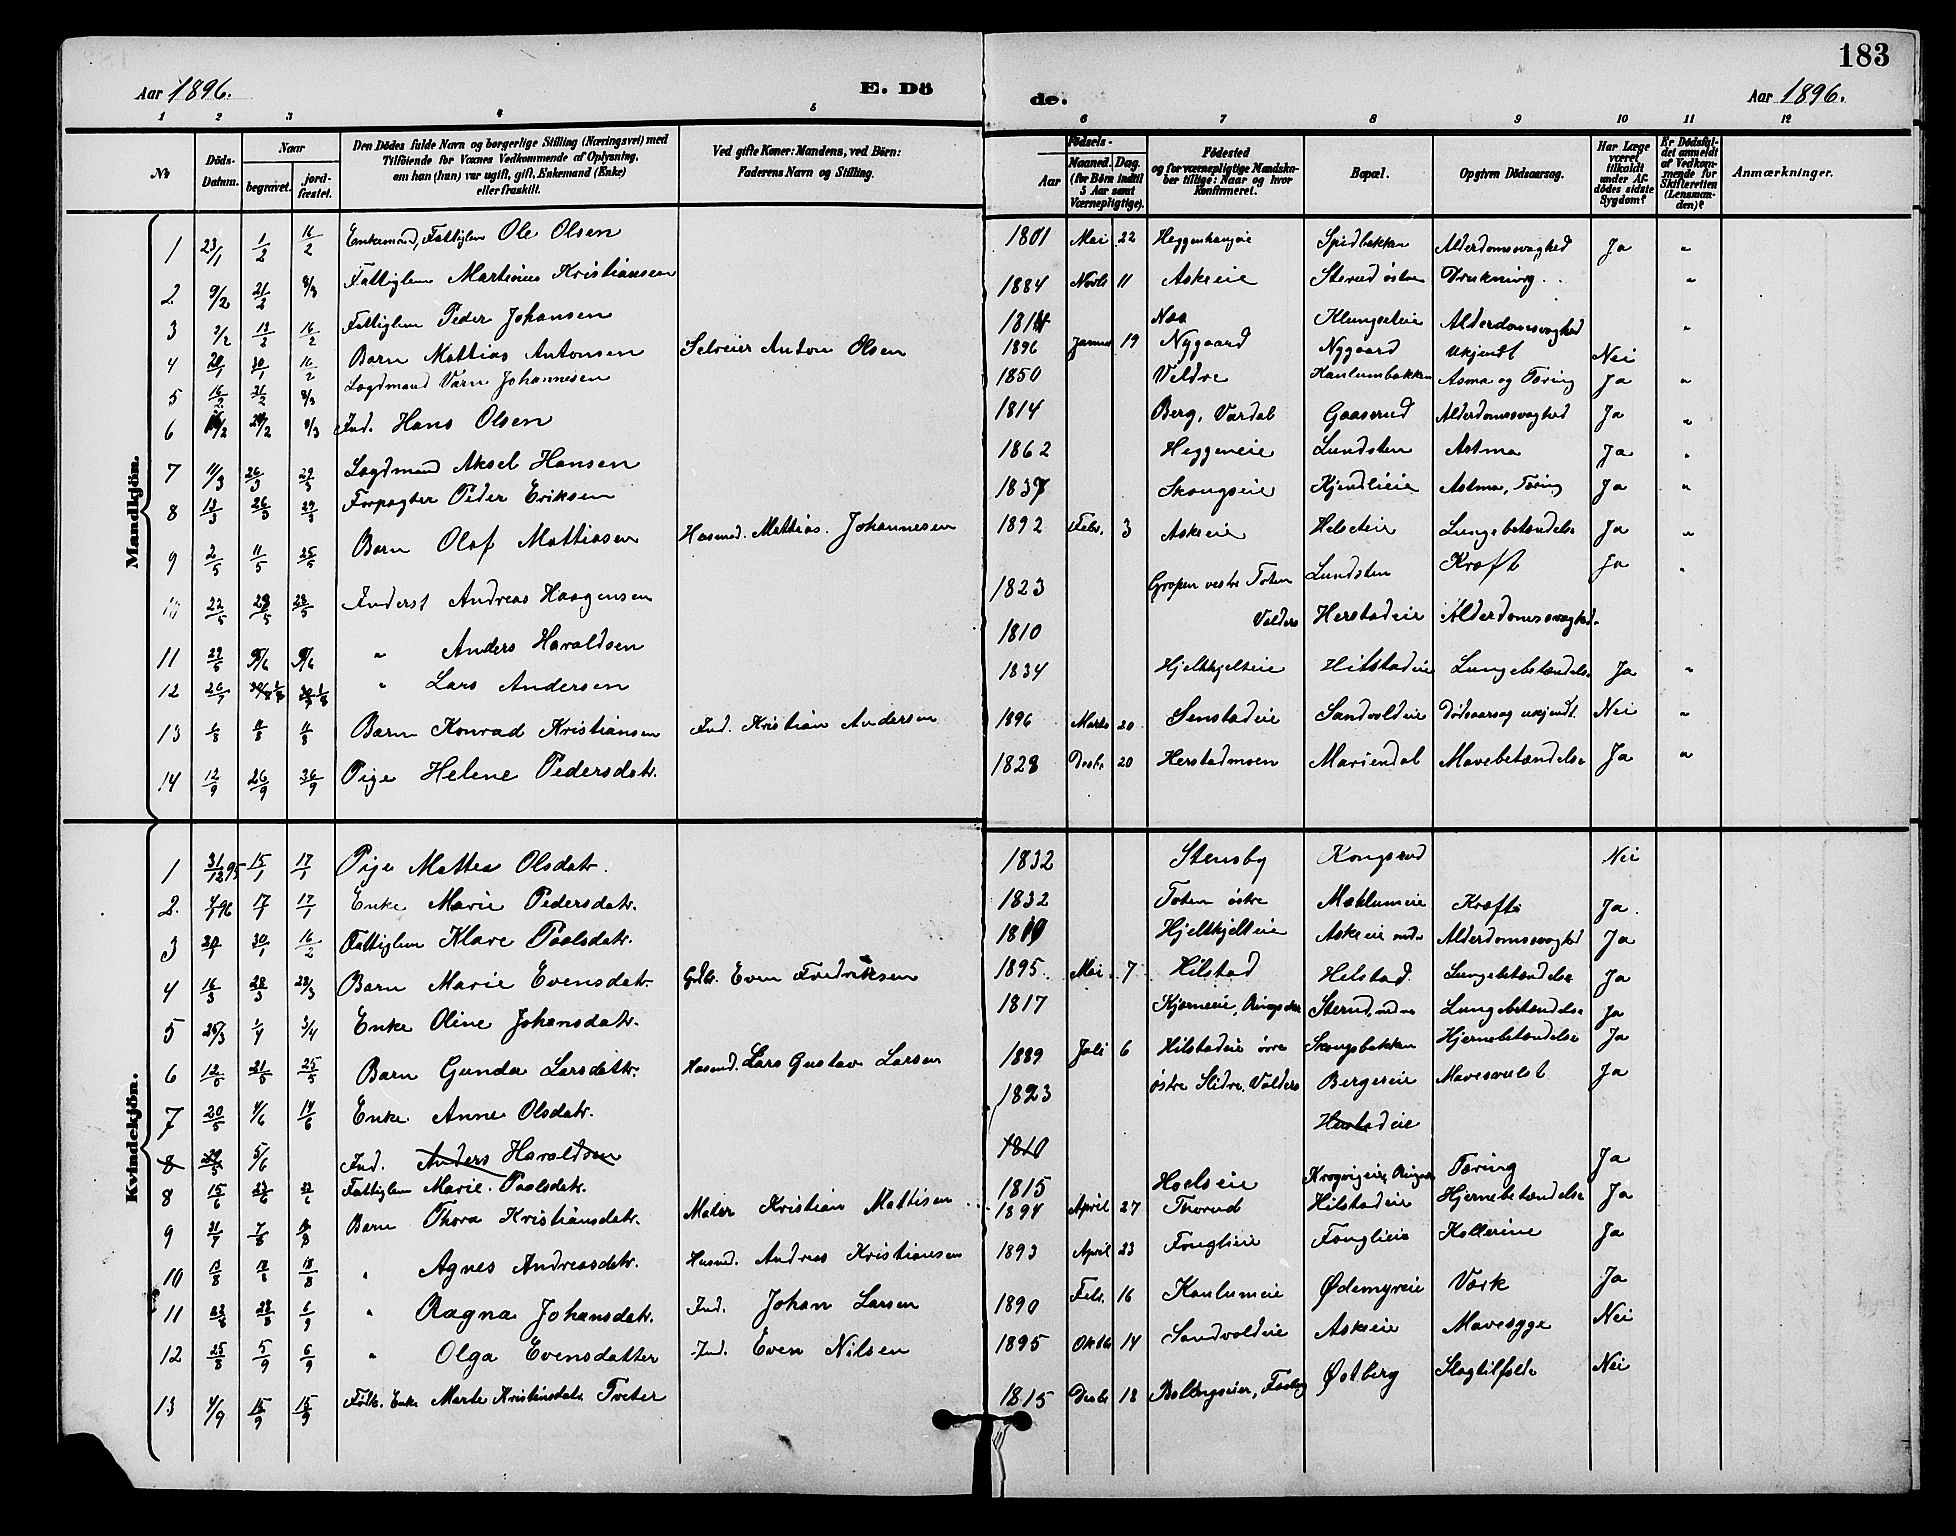 183
Aar 1896.
E. Dö
de.
Aar 1896.
1 2 3 4 5 6 7 8 9 10 11 12
No
Döds-Datum.
Naar
begravet.
jord-fæstet.
Den Dödes fulde Navn og borgerlige Stilling (Næringsvei) med
Tilföiende for Voxnes Vedkommende af Oplysning,
om han (hun) var ugift, gift, Enkemand (Enke)
eller fraskilt.
Ved gifte Koner: Mandens, ved Börn:
Faderens Navn og Stilling.
Födsels-
Aar
Maaned. Dag.
(for Børn indtil
5 Aar samt
Værnepligtige).
Födested
og for værnepligtige Mandska-
ber tillige: Naar og hvor
konfirmeret.
Bopæl.
Opgiven Dödsaarsag.
Har Læge
været
tilkaldt
under Af-
dödes sidste
Sygdom?
Er Dödsfal-
det anmeldt
af Vedkom-
mende for
Skifteretten
(Lensman-
den)?
Anmærkninger.
Mandkjön.
1 23/1 1/2 16/2 Enkemand, Fattiglem Ole Olsen 1801 Mai 22 Heggenhaugeie Spidbakken Alderdomssvaghed Ja "
2. 9/2 21/2 8/3 Fattiglem Martinius Kristiansen 1884 Novb 11 Askeie Sterud østre Drukning "
3 2/2 13/2 16/2 Fattiglem Peder Johansen 1814 Naa Klungseteie Alderdomssvaghed "
4 20/1 30/1 16/2 Barn Mattias Antonsen Selveier Anton Olsen 1896 Januar 19 Nygaard Nygaard Ukjendt Nei
5 16/2 21/2 8/3 Logdmand Johannesen 1850 Veldre Kaulumbakken Asma og Tæring Ja "
6 /2 /2 8/3 Ind. Hans Olsen 1814 Berg, Vardal Gaaserud Alderdomssvaghed Ja "
7 11/3 26/3 29/3 Logdmand Aksel Hansen 1862 Heggeneie Lundsten Astma Ja "
8 13/3 26/3 29/3 Forpagter Peder Eriksen 1837 Skougseie Kjendlieie Astma, Tæring Ja "
9 2/5 11/5 25/5 Barn Olaf Mattiasen Husmd. Mattias Johannesen 1892 Febr. 3 Askeie Helseteie Lungebetændelse Ja "
10 22/5 28/5 28/5 Inderst Andreas Haagensen 1823 Gropen vestre Toten Lundsten Kræft Ja "
11 29/5 5/6 9/6 " Anders Haraldsen 1810 Valders Herstadeie Alderdomssvaghed.
12 26/7 1/8 1/8 " Lars Andersen 1834 Hjelkjelteie Hilstadeie Lungebetændelse Ja "
13 6/8 11/8 11/8 Barn Konrad Kristiansen Ind. Kristian Andersen 1896 Marts 20 Senstadeie Sandvoldeie Dødsaarsag ukjendt. Nei "
14 12/9 26/9 26/9 Pige Helene Pedersdatr. 1828 Decbr 20 Herstadmoen Mariendal Mavebetændelse Ja "
Kvindekjön.
1 31/12 95 15/1 17/1 Pige Mattea Olsdatr. 1832 Stensby Kongsrud Nei
2. 4/1 96 17/1 17/1 Enke Marie Pedersdatr. 1832 Toten østre Mæhlumeie Kræft Ja.
3 20/1 30/1 16/2 Fattiglem Klare Paalsdatr. 1819 Hjelkjelteie Askeie nedre Alderdomssvaghed Ja
4 16/3 28/3 28/3 Barn Marie Evensdatr Gdbr. Even Fredriksen 1895. Mai 7 Hilstad Helstad. Lungebetændelse Ja
5 25/3 1/4 3/4 Enke Oline Johansdatr. 1817 Kjærneeie, Ringsaker Sterud, nedre Lungebetændelse Ja
6 12/5 21/5 25/5 Barn Gunda Larsdattr. Husmd. Lars Gustav Larsen 1889 Juli 6 Hilstadeie øvre Skougsbakken Hjernebetændelse Ja
7 20/5 4/6 14/6 Enke Anne Olsdatr. 1823 østre Slidre, Valders Bergeseie Mavesvulst Ja
8 29/5 5/6 Ind. Anders Haraldsen 1810 Herstadeie
8 15/6 23/6 23/6 Fattiglem Marie Paalsdatr. 1815 Hoelseie Tæring Ja
9 31/7 7/8 9/8 Barn Thora Kristiansdatr. Maler Kristian Mattisen 1894 April 27 Thorud Hilstadeie Hjernebetændelse Ja
10 13/8 18/8 18/8 " Agnes Andreasdatr. Husmd. Andreas Kristiansen 1893 April 23 Fonglieie Fonglieie Kollerine Ja
11 23/8 28/8 6/9 " Ragna Johansdatr. Ind. Johan Larsen 1890 Febr. 16 Kaulumeie Ødemyreie Værk Ja
12 25/8 5/9 6/9 " Olga Evensdatter Ind. Even Nilsen 1895 Oktbr 14 Sandvoldeie Askeie Mavesyge Nei
13 4/9 15/9 15/9 Enke Marte Kristiansdatr. Tveter 1815 Decbr 18 Østberg Slagtilfælde Nei